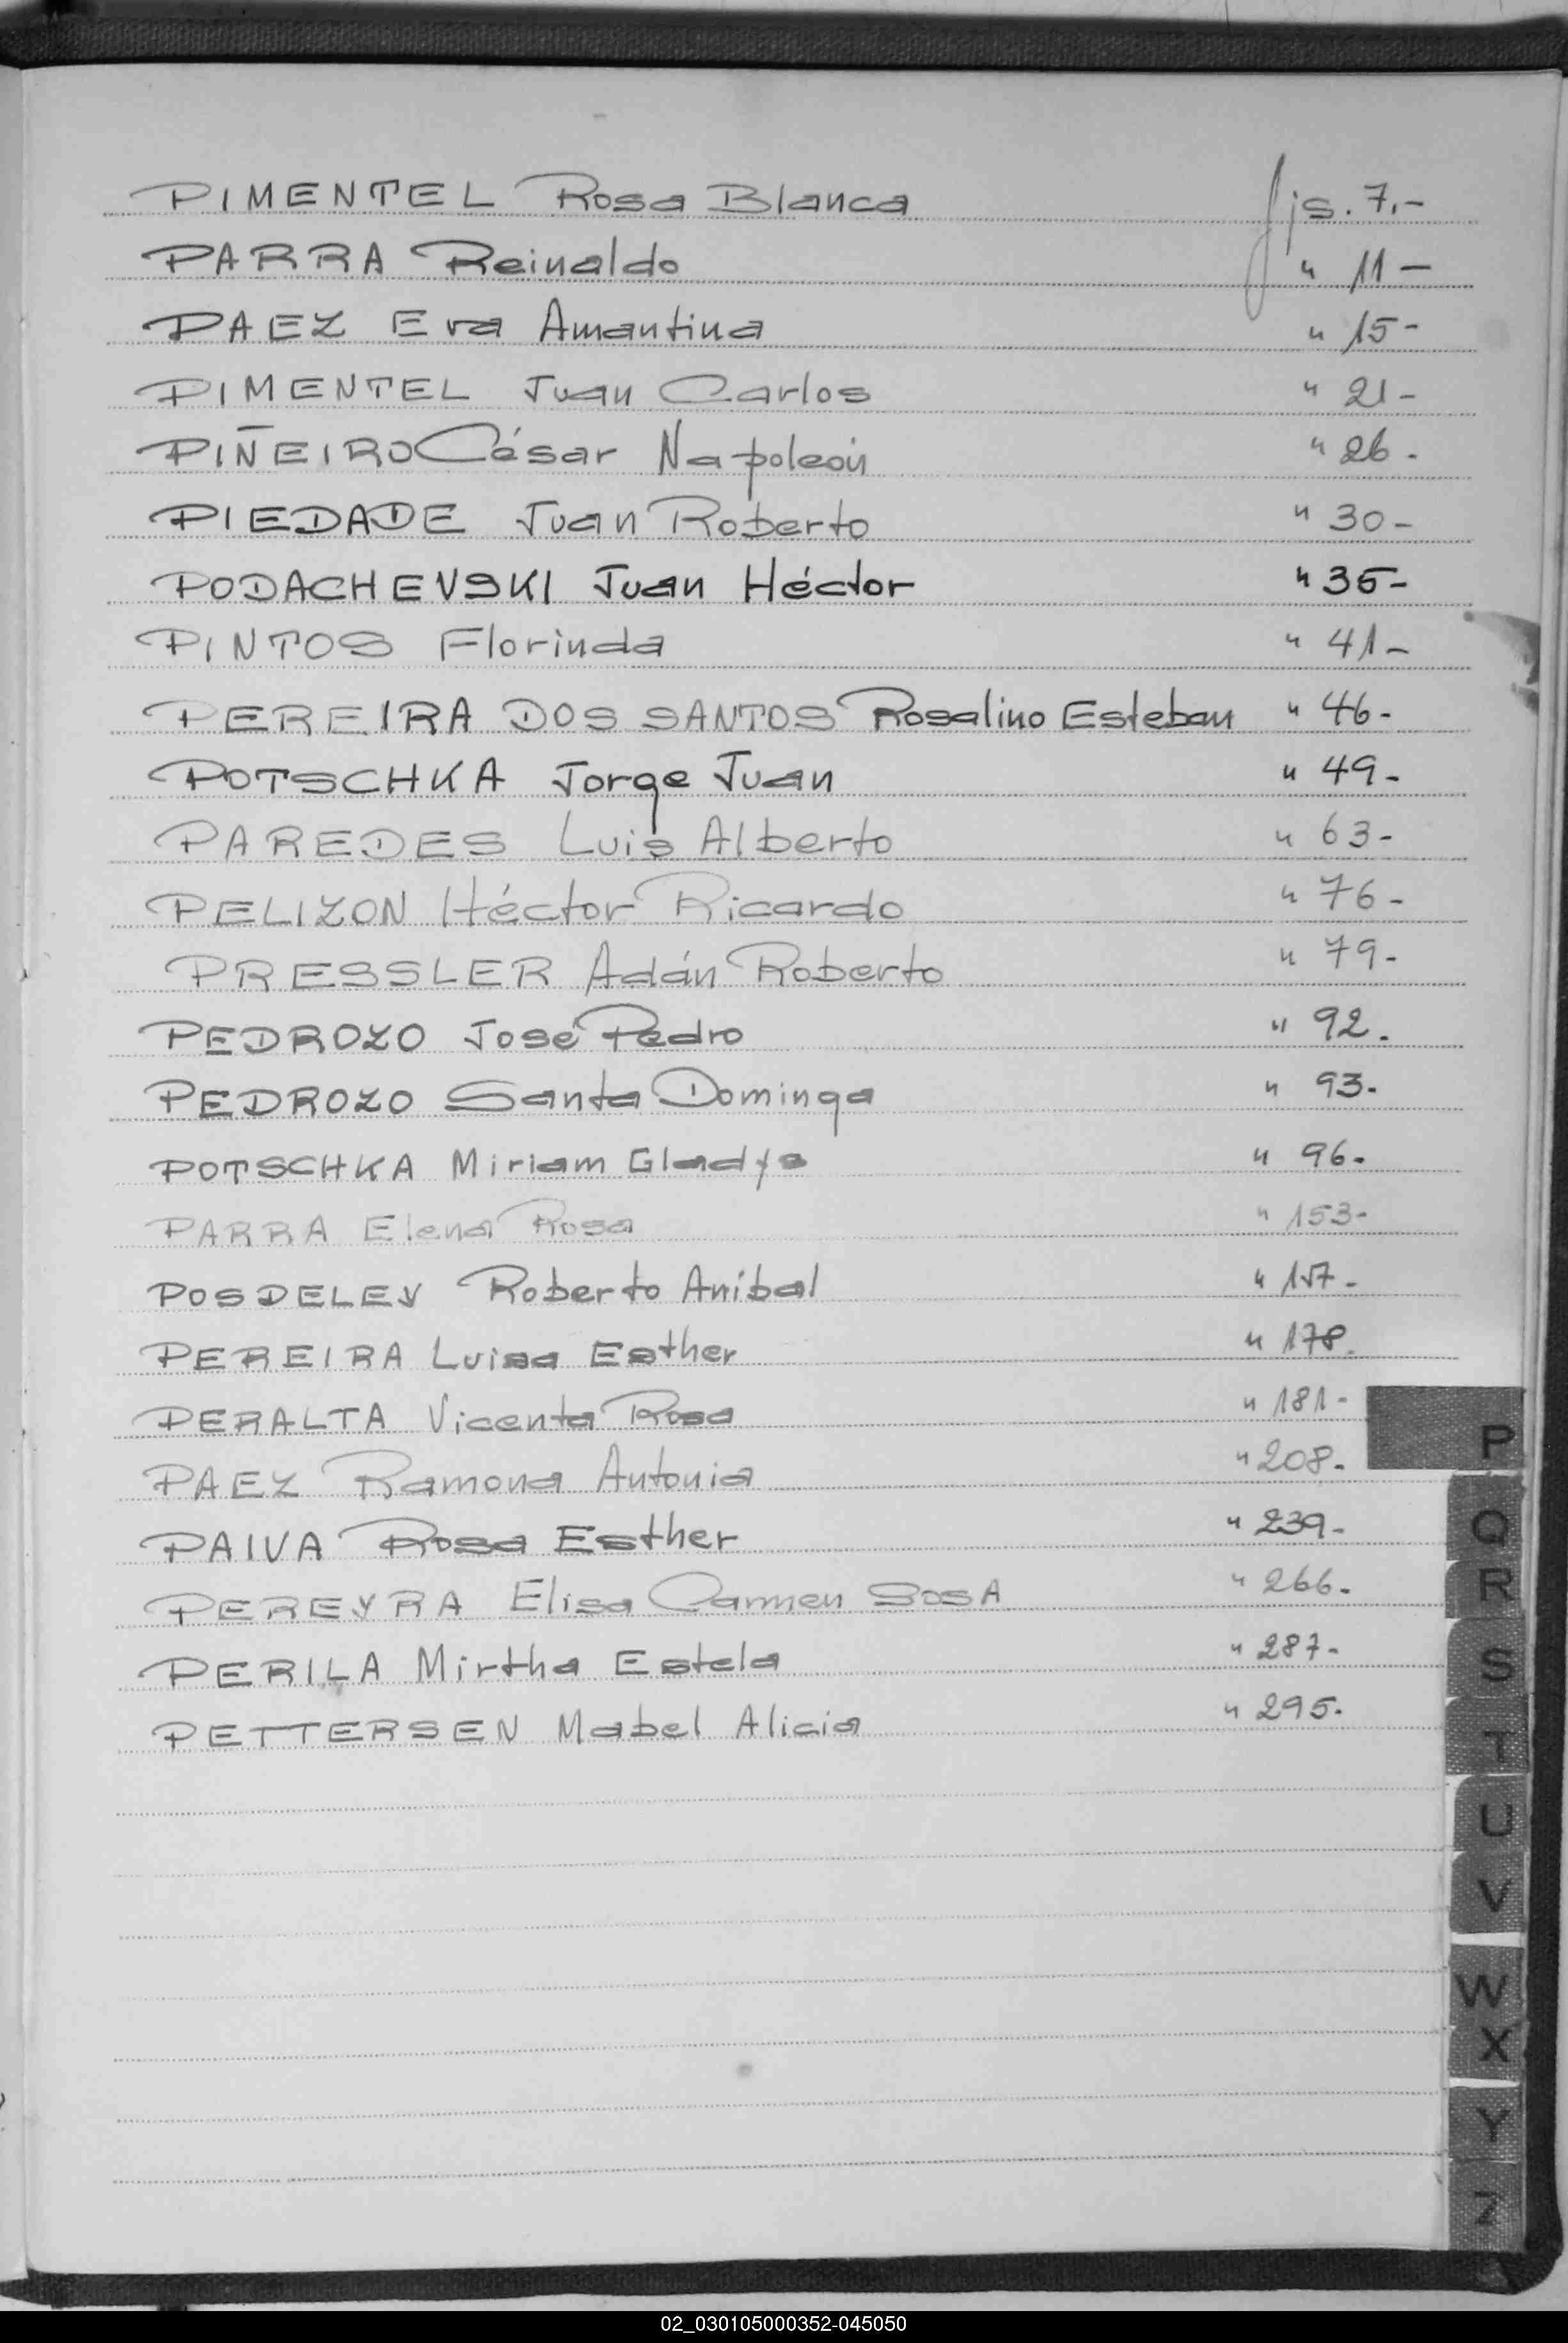 PIMENTEL Rosa Blanca fjs. 7.-
PARRA Reinaldo " 11-
PAEZ Eva Amantina " 15-
PIMENTEL Juan Carlos " 21-
PIÑEIRO César Napoleón " 26.
PIEDADE Juan Roberto " 30-
PODACHEVSKI Juan Héctor " 35-
PINTOS Florinda " 41-
PEREIRA DOS SANTOS Rosalino Esteban " 46-
POTSCHKA Jorge Juan " 49-
PAREDES Luis Alberto " 63-
PELIZON Héctor Ricardo " 76-
PRESSLER Adán Roberto " 79-
PEDROZO José Pedro " 92.
PEDROZO Santa Dominga " 93-
POTSCHKA Miriam Gladys " 96.
PARRA Elena Rosa " 153-
POSDELEY Roberto Anibal " 157-
PEREIRA Luisa Esther " 178.
PERALTA Vicenta Rosa " 181-
PAEZ Ramona Antonia " 208.
PAIVA Rosa Esther " 239-
PEREYRA Elisa Carmen SOSA " 266.
PERILA Mirtha Estela " 287-
PETTERSEN Mabel Alicia " 295.
P
Q
R
S
T
U
V
W
X
Y
Z
02_030105000352-045050